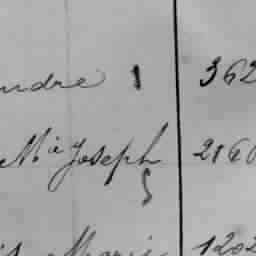 ndre 1 362
Mie Joseph 2160
Marie 1202